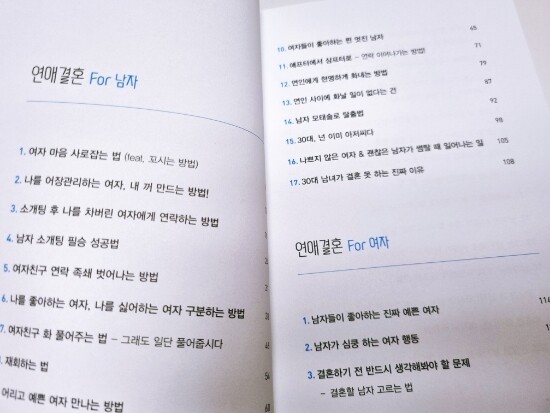 연애결혼 For 남자
1. 여자 마음 사로잡는 법 (feat. 꼬시는 방법)
2. 나를 어장관리하는 여자, 내 꺼 만드는 방법!
3. 소개팅 후 나를 차버린 여자에게 연락하는 방법
4. 남자 소개팅 필승 성공법
5. 여자친구 연락 족쇄 벗어나는 방법
6. 나를 좋아하는 여자, 나를 싫어하는 여자 구분하는 방법
7. 여자친구 화 풀어주는 법 – 그래도 일단 풀어줍시다
재회하는 법 54
어리고 예쁜 여자 만나는 방법 60
10. 여자들이 좋아하는 찐 멋진 남자 65
11. 애프터에서 삼프터로 – 연락 이어나가는 방법! 71
12. 연인에게 현명하게 화내는 방법 79
13. 연인 사이에 화날 일이 없다는 건 87
14. 남자 모태솔로 탈출법 92
15. 30대, 넌 이미 아저씨다 98
16. 나쁘지 않은 여자 & 괜찮은 남자가 썸탈 때 일어나는 일 105
17. 30대 남녀가 결혼 못 하는 진짜 이유 108
연애결혼 For 여자
1. 남자들이 좋아하는 진짜 예쁜 여자
2. 남자가 심쿵 하는 여자 행동
3. 결혼하기 전 반드시 생각해봐야 할 문제
– 결혼할 남자 고르는 법